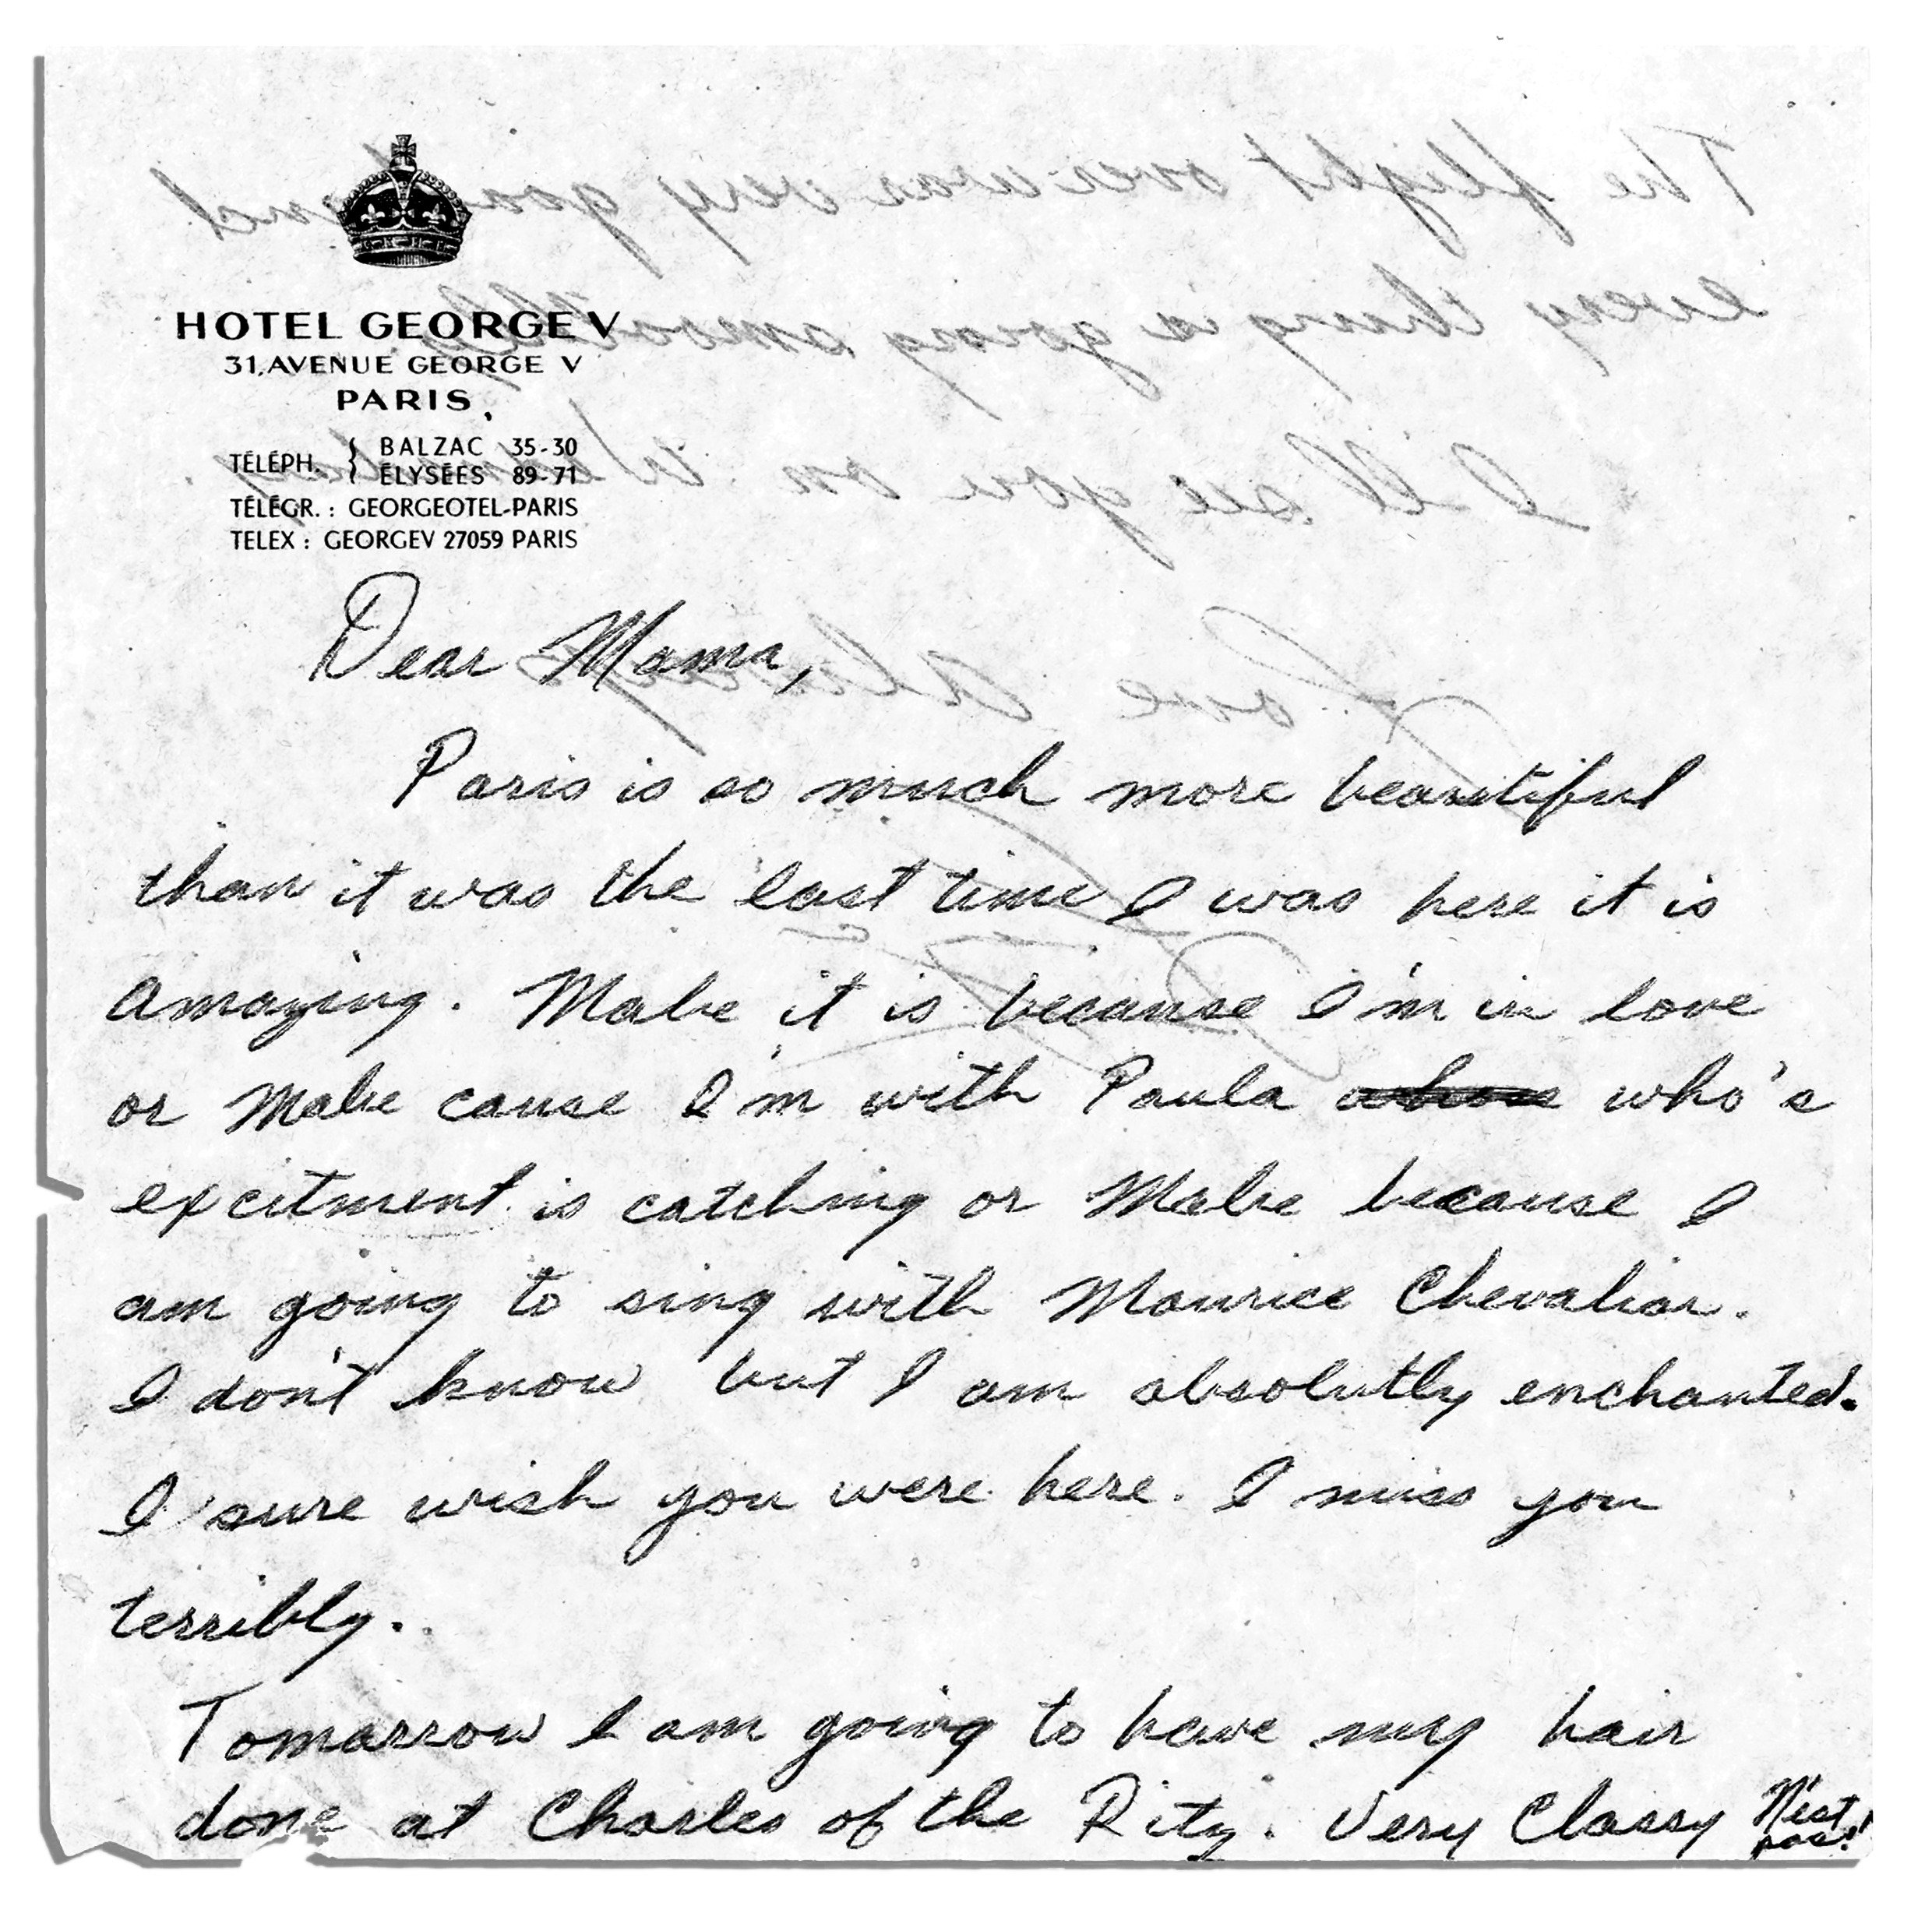 HOTEL GEORGE V
31, AVENUE GEORGE V
PARIS
TÉLÉPH. { BALZAC 35-30
ÉLYSÉES 89-71
TÉLÉGR. : GEORGEOTEL-PARIS
TELEX : GEORGEV 27059 PARIS
The flight over was very good and
every thing is going smoothly
I'll see you on Wednesday.
Love Always
Dear Mama,
Paris is so much more beautiful
than it was the last time I was here it is
amazing. Mabe it is because I'm in love
or Mabe cause I'm with Paula who's
excitment is catching or Mabe because I
am going to sing with Maurice Chevaliar.
I don't know but I am absolutly enchanted.
I sure wish you were here. I miss you
terribly.
Tomarrow I am going to have my hair
done at Charles of the Ritz. Very Classy N'est
pas!